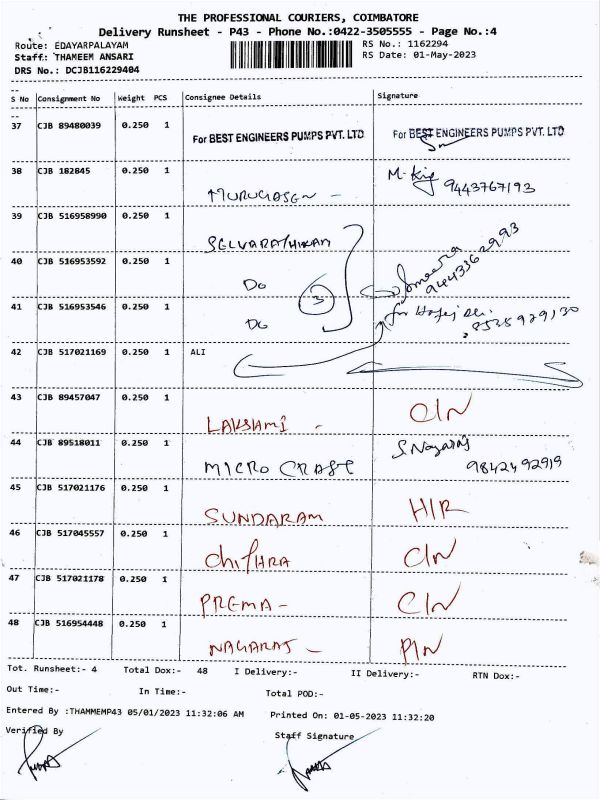 THE PROFESSIONAL COURIERS, COIMBATORE
Delivery Runsheet - P43 - Phone No.:0422-3505555 - Page No.:4
Route: EDAYARPALAYAM RS No.: 1162294
Staff: THAMEEM ANSARI RS Date: 01-May-2023
DRS No.: DCJB116229404
S No Consignment No Weight PCS Consignee Details Signature
37 CJB 89480039 0.250 1 For BEST ENGINEERS PUMPS PVT. LTD For BEST ENGINEERS PUMPS PVT. LTD
38 CJB 182845 0.250 1 MURUGASEN - M. King 9443767193
39 CJB 516958990 0.250 1 SELVARATHINAM
40 CJB 516953592 0.250 1 Do 3 9443362993
41 CJB 516953546 0.250 1 Do for 8525929130
42 CJB 517021169 0.250 1 ALI
43 CJB 89457047 0.250 1 LAKSHMI - CIN
44 CJB 89518011 0.250 1 MICRO CRAFT S. Nagaraj 9842492919
45 CJB 517021176 0.250 1 SUNDARAM HIR
46 CJB 517045557 0.250 1 CHITHRA CIN
47 CJB 517021178 0.250 1 PREMA - CIN
48 CJB 516954448 0.250 1 NAGARAJ - PIN
Tot. Runsheet:- 4 Total Dox:- 48 I Delivery:- II Delivery:- RTN Dox:-
Out Time:- In Time:- Total POD:-
Entered By :THAMMEMP43 05/01/2023 11:32:06 AM Printed On: 01-05-2023 11:32:20
Verified By Staff Signature